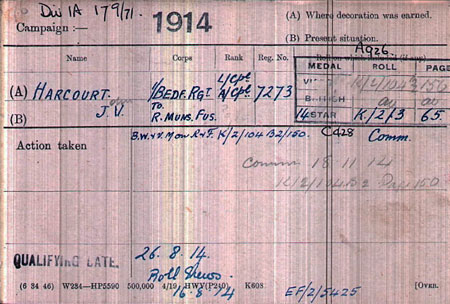 Div 1A 179/71.
Campaign :—
1914
(A) Where decoration was earned.
(B) Present situation.
A926
Name
Corps
Rank
Reg. No.
MEDAL ROLL PAGE
(A) HARCOURT
1/BEDF. RGT
L/Cpl
A/Cpl
7273
K/2/104 B2 150
(B)
J.V.
To.
R. MUNS. FUS.
14 STAR K/2/3 65.
Action taken
B.W.&V. Mon R&F. K/2/104 B2/150.
C428
Comm.
Comm 18 11 14
K/2/104 B2 150
QUALIFYING DATE.
26. 8. 14.
Roll Shews
16. 8. 14
(6 34 46) W284—HP5590 500,000 4/19 HWV(P240) K608
EF/2/5425
[OVER.